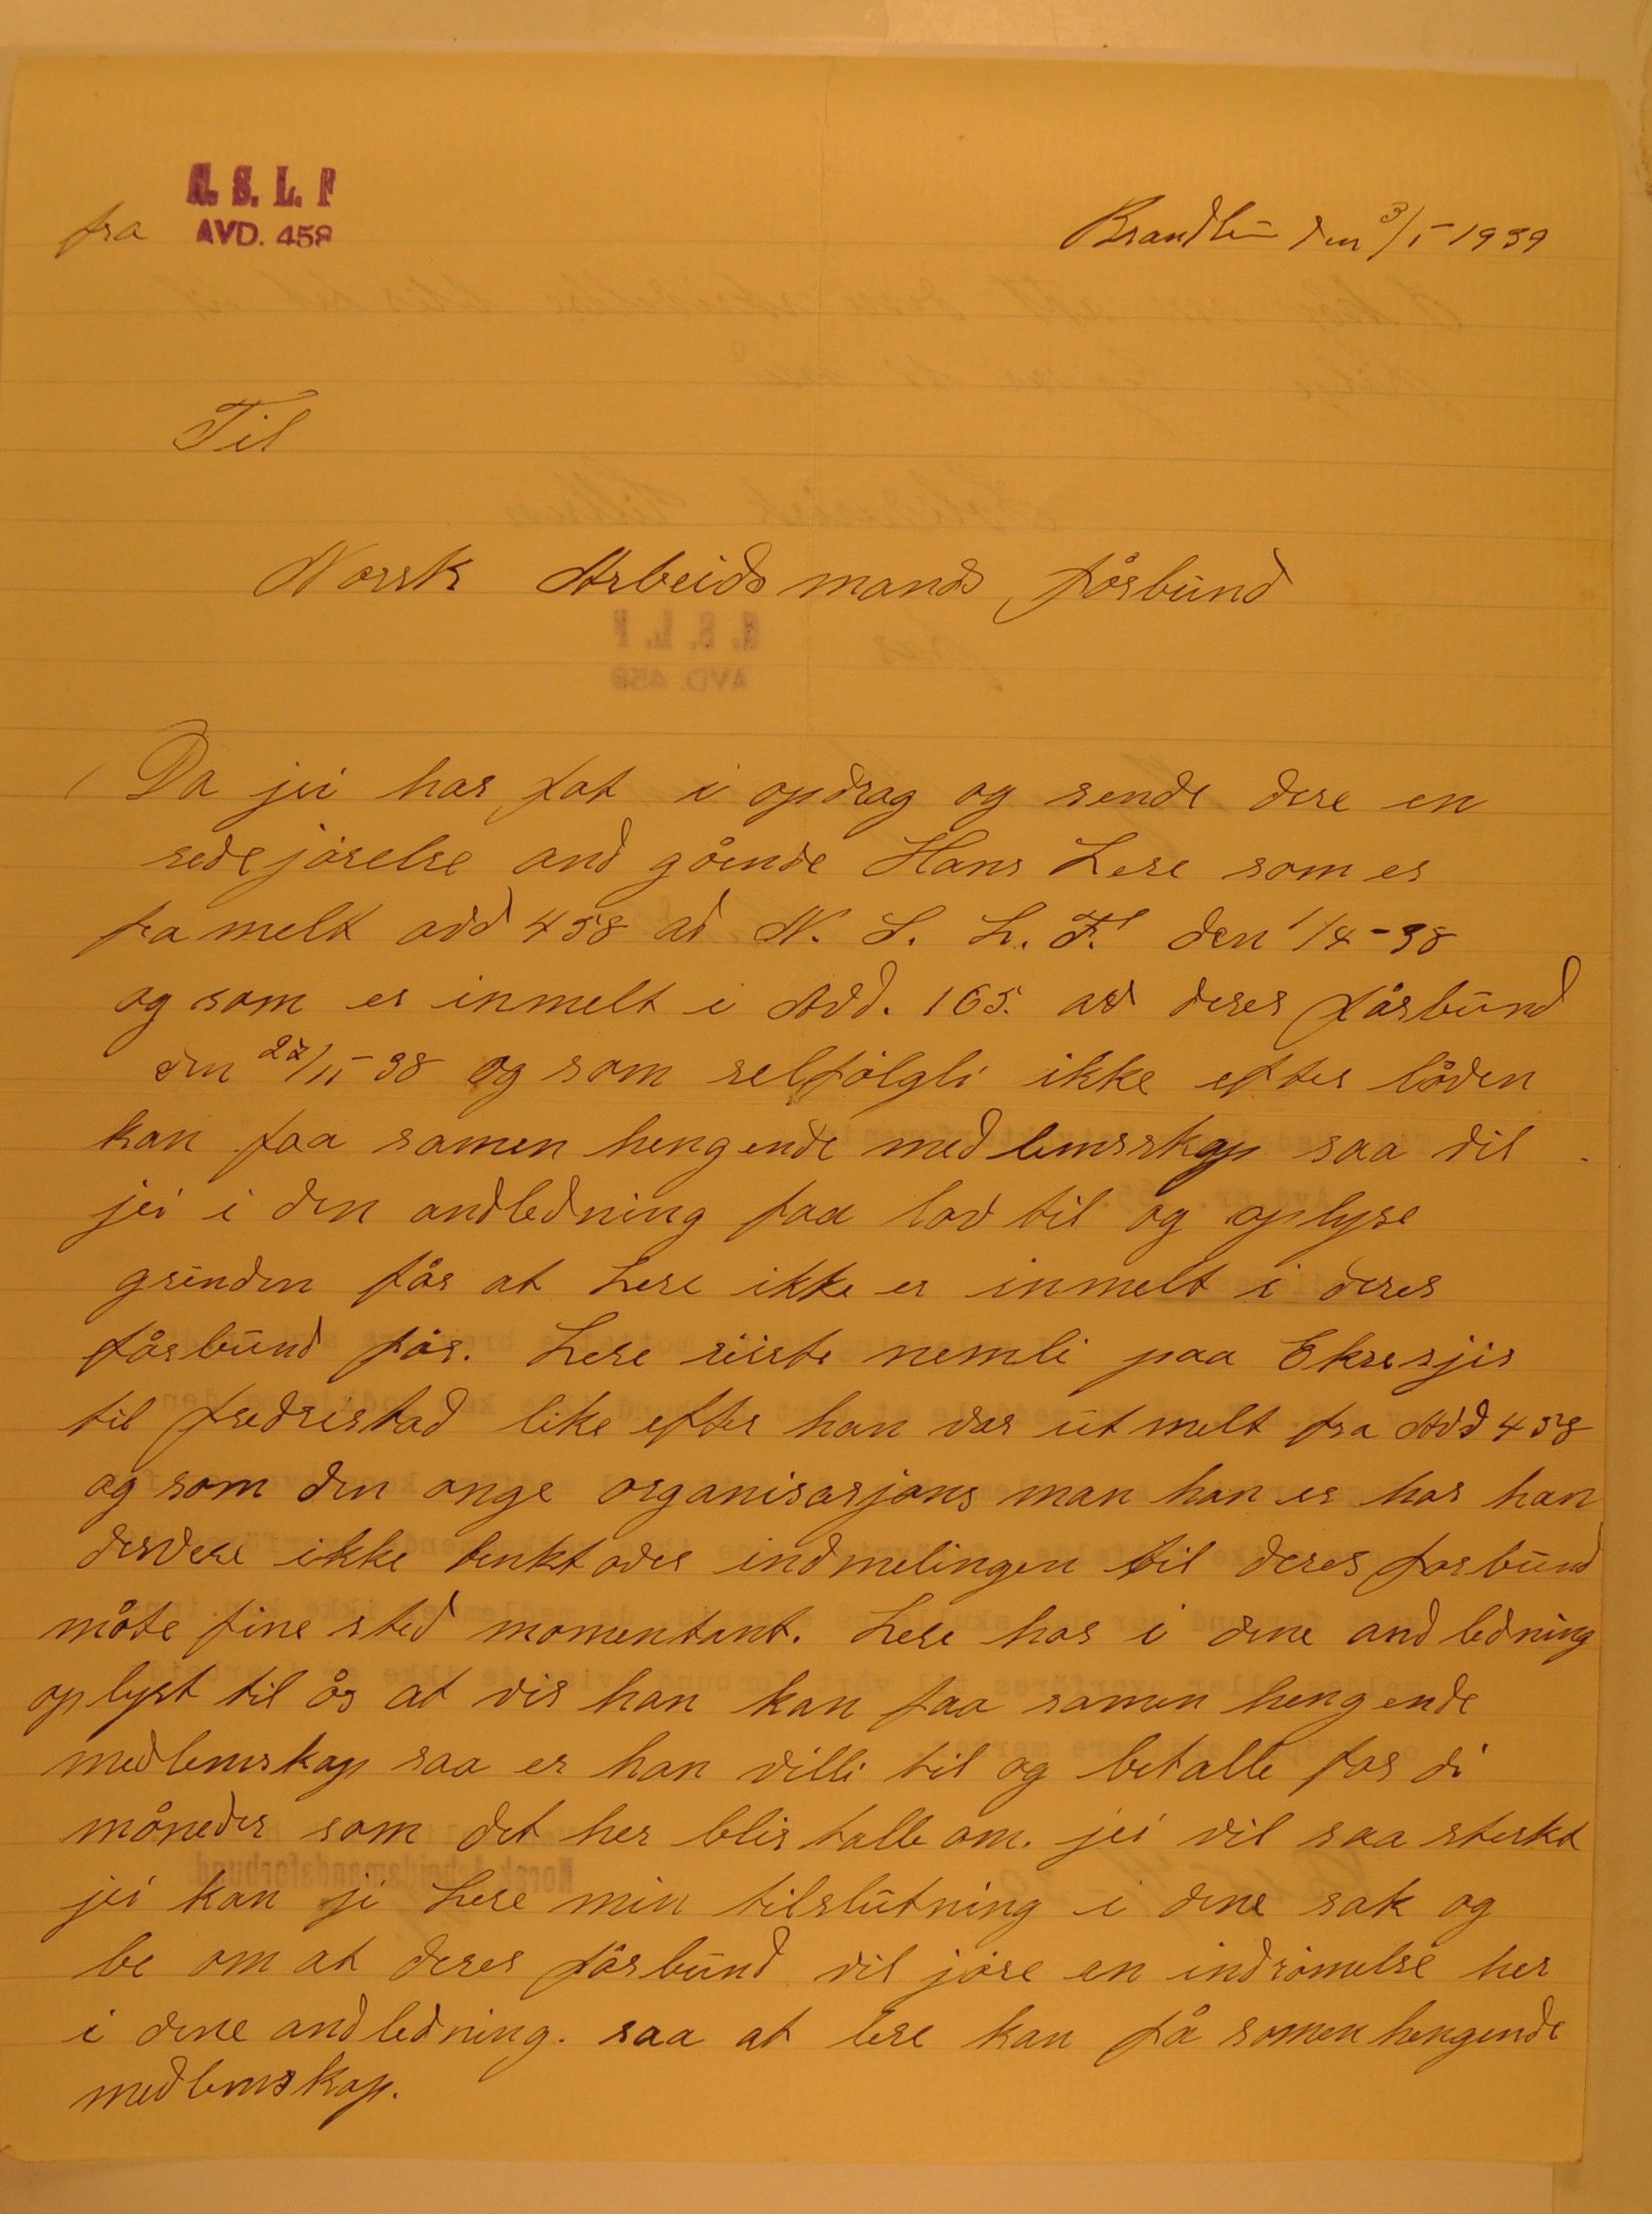 N. S. L. F
fra AVD. 458
Brandbu den 3/1-1939
Til
Norsk Arbeids mands forbund
Da jei har fat i opdrag og sende dere en
redejørelse and gående Hans Lere som er
fra melt avd 458 av N. S. L. F. den 1/4-38
og som er inmelt i Avd. 165. av deres førbund
den 22/11-38 og som selfølgli ikke efter låven
kan faa samen hengende medlemsskap saa vil
jei i den andledning faa lov til og oplyse
grunden før at Lere ikke er inmelt i deres
førbund før. Lere reiste nemli paa Eksesjis
til fredristad like efter han var utmelt fra Avd 458
og som den onge organisasjons man han er har han
desvere ikke tenkt over indmelingen til deres forbund
måte fine sted momentant. Lere har i dene andledning
oplyst til ås at vis han kan faa samen hengende
medlemskap saa er han villi til og betalle for di
måneder som det her blir talle om. jei vil saa sterkt
jei kan ji Lere min tilslutning i dene sak og
be om at deres førbund vil jøre en indrømelse her
i dene andledning. saa at lere kan få samen hengende
medlemskap.